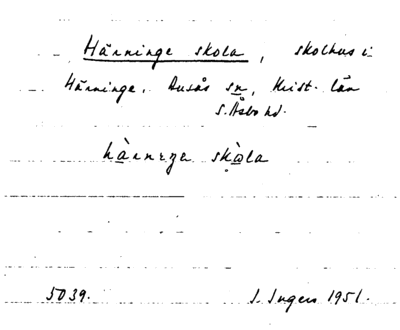 Hänninge skola, skolhus i
Hänninge. Ausås sn, Krist. län
S. Åsbo hd.
skola
5039. I. Ingers 1951.